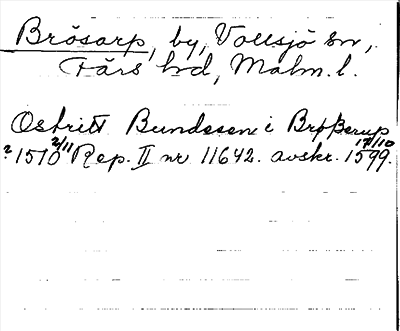 Brösarp, by, Vollsjö sn,
Färs hd, Malm. l.
Ostritt Bundssen i Brøßerup
? 1510 2/11 Rep. II nr 11642. avskr. 17/10 1599.